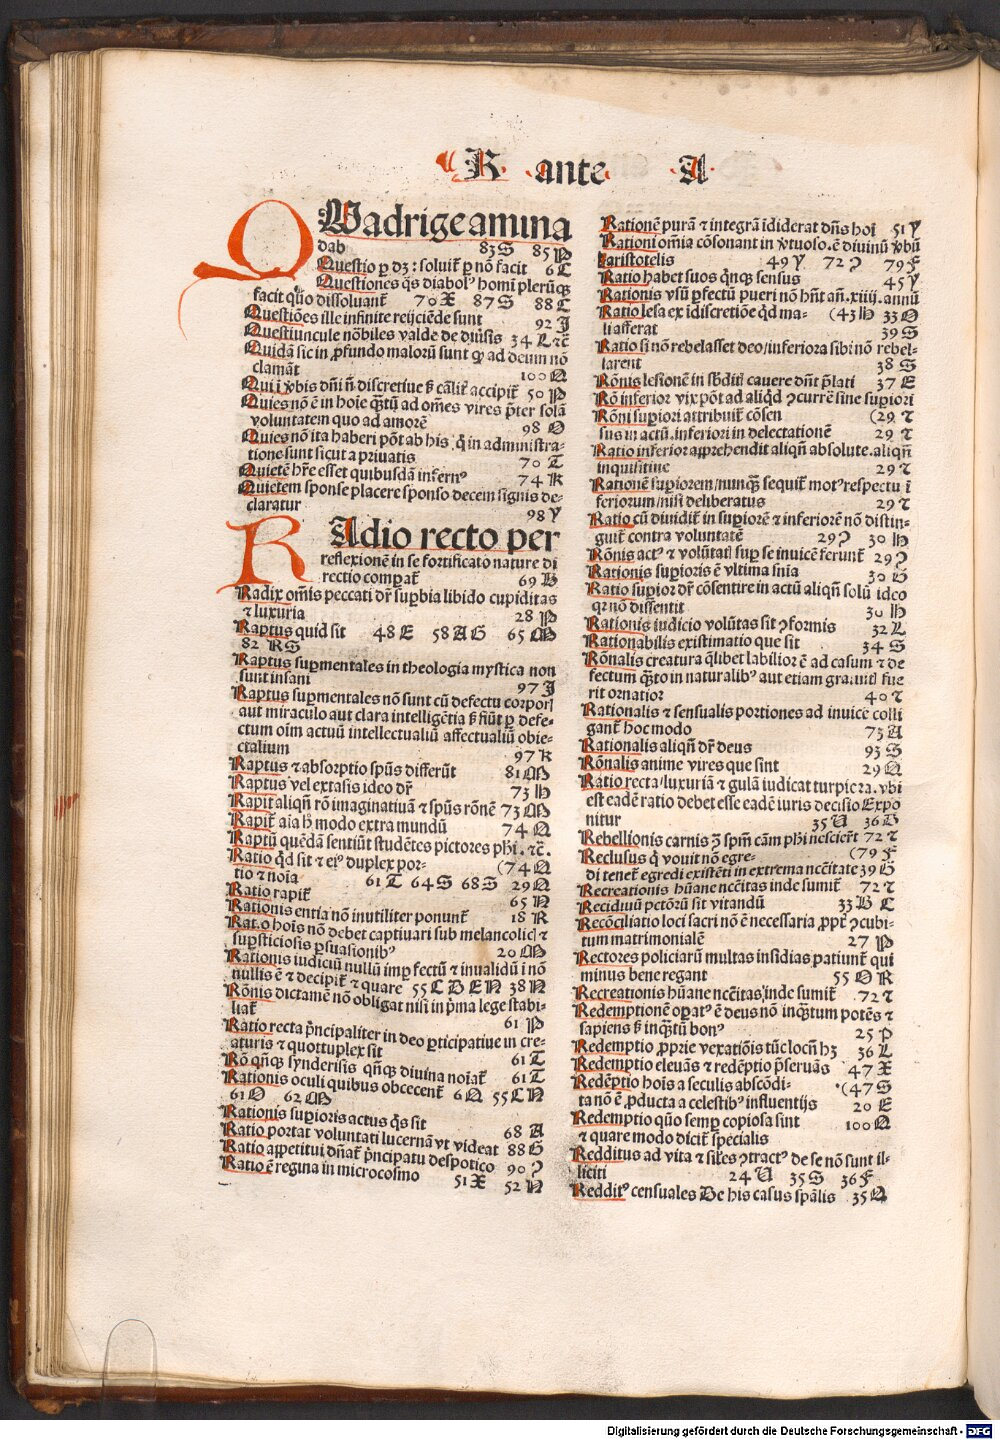 R ante A
QWadrige amina
dab 83 S 85 P
Questio ꝑ dꝫ : soluit̄ ꝑ nō facit 6 C
Questiones q̄s diabolꝰ homī plerūqꝫ
facit quō dissoluant̄ 70 X 87 S 88 C
Questiōes ille infinite reijciēde sunt 92 J
Questiuncule nōbiles valde de diuīsis 34 L ⁊c̄
Quidā sic in ꝓfundo malorū sunt ꝙ ad deum nō
clamāt 100 Q
Qui ī v̄bis dn̄i n̄ discretiue sꝫ cāłit̄ accipit̄ 50 P
Quies nō ē in hoīe q̄ꝫtū ad om̄es vires p̄ter solā
voluntatem quo ad amorē 98 O
Quies nō ita haberi pōt ab his q̄ in administra-
tione sunt sicut a priuatis 70 T
Quietē hr̄e esset quibusdā infernꝰ 74 K
Quietem sponse placere sponso decem signis de-
claratur 98 Y
RAdio recto per
reflexionē in se fortificato nature di
rectio comparat̄ 69 B
Radix om̄is peccati dr̄ suꝑbia libido cupiditas
⁊ luxuria 28 P
Raptus quid sit 48 E 58 A G 65 M
82 R S
Raptus suꝑmentales in theologia mystica non
sunt insani 97 J
Raptus suꝑmentales nō sunt cū defectu corporꝭ
aut miraculo aut clara intelligētia sꝫ fiūt ꝑ defe-
ctum oīm actuū intellectualiū affectualiū obie-
ctalium 97 K
Raptus ⁊ absorptio spūs differūt 81 M
Raptus vel extasis ideo dr̄ 73 H
Rapit aliqn̄ rō imaginatiuā ⁊ spūs rōnē 73 M
Rapit̄ aīa hꝫ modo extra mundū 74 Q
Raptū quēdā sentiūt studētes pictores phī. ⁊c̄.
Ratio qd̄ sit ⁊ eiꝰ duplex por- (74 Q
tio ⁊ noīa 61 T 64 S 68 S 29 Q
Ratio rapit̄ 65 N
Rationis entia nō inutiliter ponunt̄ 18 R
Ratio hoīs nō debet captiuari sub melancolicꝭ ⁊
suꝑsticiosis ꝑsuasionibꝰ 20 M
Rationis iudiciū nullū imꝑfectū ⁊ inualidū ī nō
nullis ē ⁊ decipit̄ ⁊ quare 55 C D E N 38 N
Rōnis dictamē nō obligat nisi in p̄ma lege stabi-
liat̄ 61 P
Ratio recta p̄ncipaliter in deo ꝑticipatiue in cre-
aturis ⁊ quottuplex sit 61 T
Rō qn̄qꝫ synderisis qn̄qꝫ diuina noīat̄ 61 T
Rationis oculi quibus obcecent̄ 6 Q 55 C N
61 O 62 M
Rationis suꝑioris actus q̄s sit
Ratio portat voluntati lucernā vt videat 68 A
Ratio appetitui dn̄at̄ p̄ncipatu despotico 88 G
Ratio ē regina in microcosmo 90 ꝯ
51 X 52 N
Rationē purā ⁊ integrā īdiderat dn̄s hoī 51 Y
Rationi om̄ia cōsonant in v̄tuoso. ē diuinū v̄bū
aristotelis 49 Y 72 ꝯ 79 F
Ratio habet suos qn̄qꝫ sensus 45 Y
Rationis vsū ꝑfectū pueri nō hn̄t an̄ .xiiij. annū
Ratio lesa ex īdiscretiōe qd̄ ma- (43 H 33 O
li afferat 39 S
Ratio si nō rebelasset deo/inferiora sibi nō rebel-
larent 38 S
Rōnis lesionē in sbd̄itꝭ cauere dn̄t p̄lati 37 E
Rō inferior vix pōt ad aliqd̄ ꝯcurrē sine suꝑiori
Rōni suꝑiori attribuit̄ cōsen (29 ⁊
sus in actū. inferiori in delectationē 29 ⁊
Ratio inferior apprehendit aliqn̄ absolute. aliqn̄
inquisitiue 29 ⁊
Rationē suꝑiorem/nunqꝫ sequit̄ motꝰ respectu ī
feriorum/nisi deliberatus 29 ⁊
Ratio cū diuidit̄ in suꝑiorē ⁊ inferiorē nō distin-
guit̄ contra voluntatē 29 ꝯ 30 H
Rōnis actꝰ ⁊ volūtatꝭ suꝑ se inuicē ferunt̄ 29 ꝯ
Rationis suꝑioris ē vltima sn̄ia 30 G
Ratio suꝑior dr̄ cōsentire in actū aliqn̄ solū ideo
qr̄ nō dissentit 30 H
Rationis iudicio volūtas sit ꝯformis 32 L
Rationabilis existimatio que sit 34 S
Rōnalis creatura q̄libet labilior ē ad casum ⁊ de
fectum q̄ꝫto in naturalibꝰ aut etiam gratuitꝭ fue
rit ornatior 40 ⁊
Rationalis ⁊ sensualis portiones ad inuicē colli
gant̄ hoc modo 73 A
Rationalis aliqn̄ dr̄ deus 93 S
Rōnalis anime vires que sint 29 Q
Ratio recta/luxuriā ⁊ gulā iudicat turpiora. vbi
est eadē ratio debet esse eadē iuris decisio Expo
nitur 35 V 36 V
Rebellionis carnis ꝫ spm̄ cām phī nescierūt 72 ⁊
Reclusus q̄ vouit nō egre- (79 F
di tenet̄ egredi existēti in extrema nc̄citate 39 G
Recreationis hūane nc̄citas inde sumit̄ 72 ⁊
Recidiuū pctōrū sit vitandū 33 B C
Recōciliatio loci sacri nō ē necessaria ꝓpt̄ ꝯcubi-
tum matrimonialē 27 P
Rectores policiarū multas insidias patiunt̄ qui
minus bene regant 55 O R
Recreationis hūane nc̄citas inde sumit̄ 72 ⁊
Redemptionē oꝑatꝰ ē deus nō inq̄ꝫtum potēs ⁊
sapiens sꝫ inq̄ꝫtū bonꝰ 25 P
Redemptio ꝓprie vexatiōis tūc locū hꝫ 36 L
Redemptio eleuās ⁊ redēptio p̄seruās 47 X
Redēptio hoīs a seculis abscōdi- (47 S
ta nō ē ꝓducta a celestibꝰ influentijs 20 E
Redemptio quō semꝑ copiosa sint 100 Q
⁊ quare modo dicit̄ specialis
Redditus ad vitā ⁊ sił̄es ꝯtractꝰ de se nō sunt il-
liciti 24 V 35 S 36 F
Redditꝰ censuales De his casus spālis 35 Q
Digitalisierung gefördert durch die Deutsche Forschungsgemeinschaft - DFG